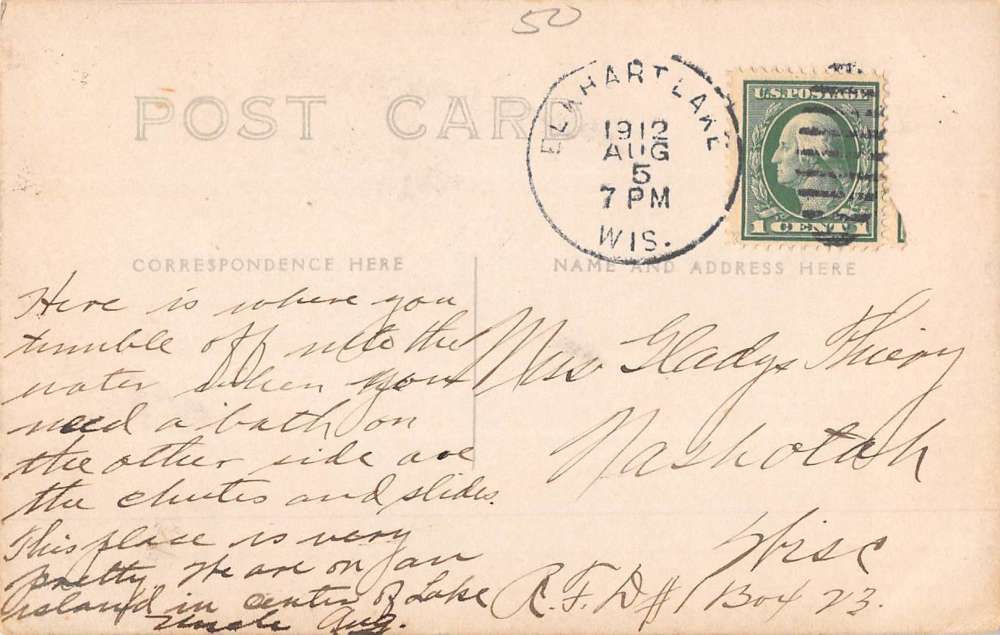 50
POST CARD
ELKHART LAKE
1912
AUG
5
7 PM
WIS.
U.S. POSTAGE
1 CENT 1
CORRESPONDENCE HERE
NAME AND ADDRESS HERE
Here is where you
tumble off into the
water when you
need a bath on
the other side are
the chutes and slides.
This place is very
pretty. We are on an
island in center of Lake
Uncle Aug.
Miss Gladys Thiery
Nashotah
Wisc
R.F.D #1 Box 23.